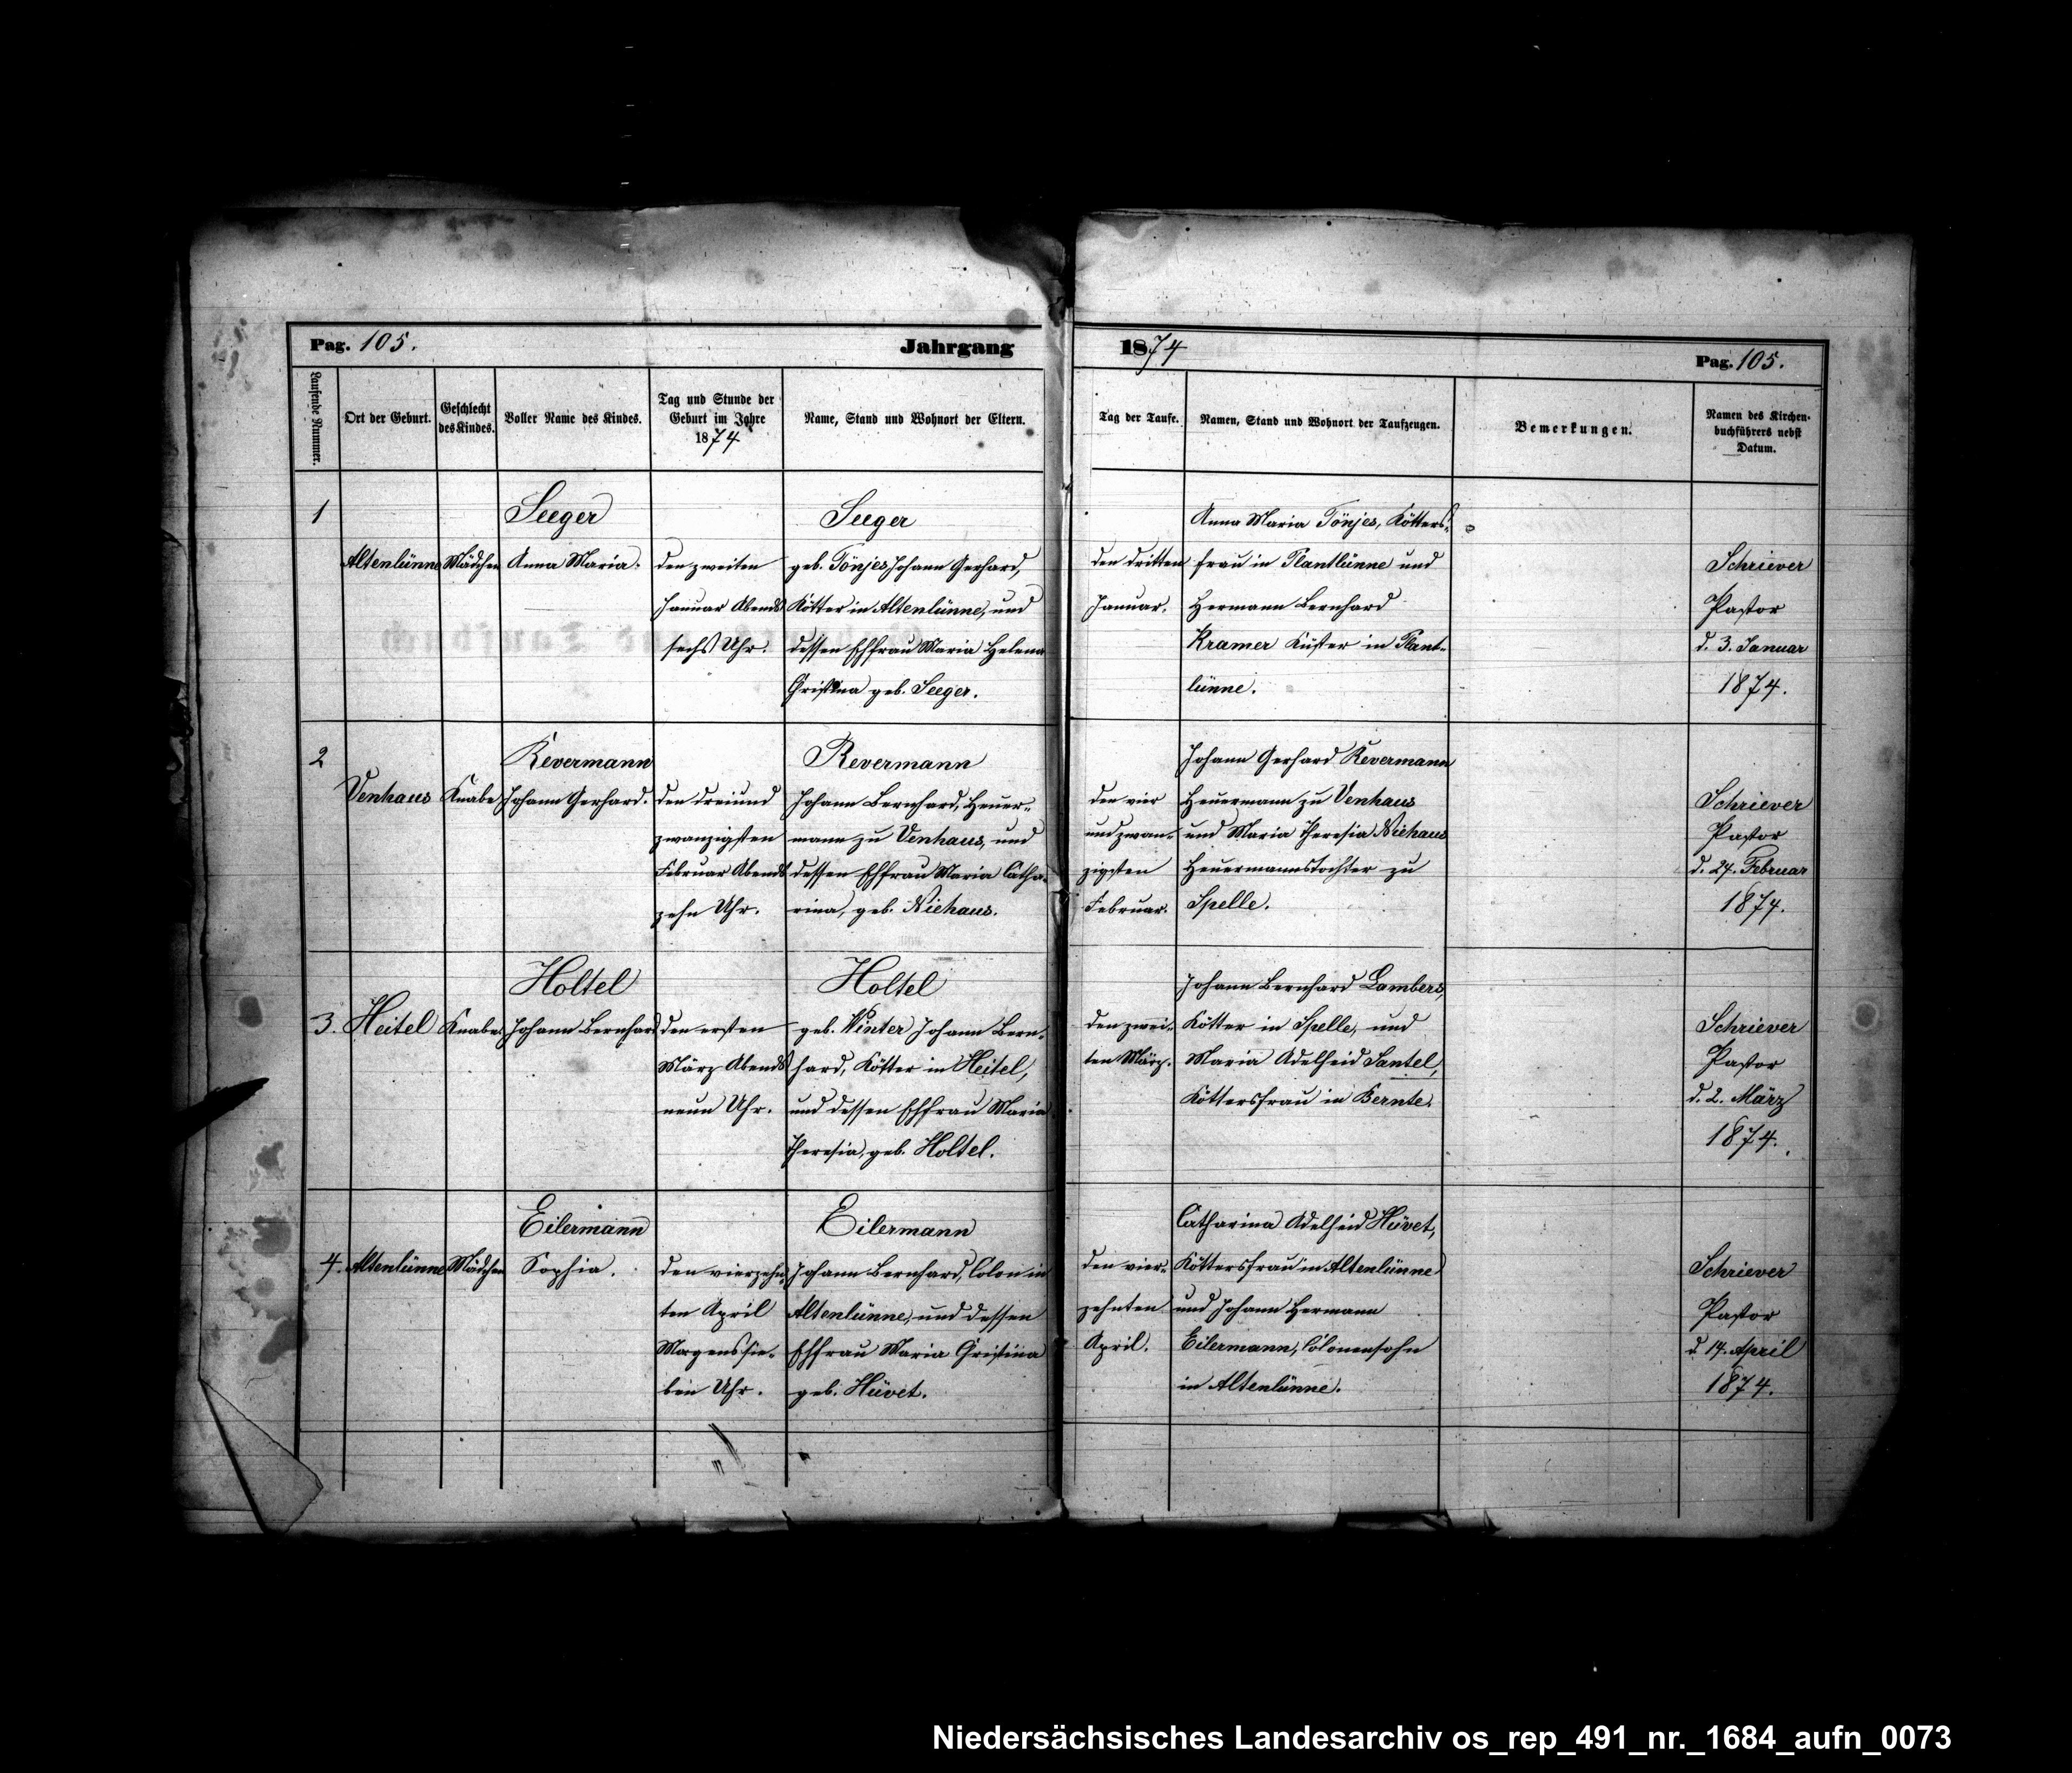 Pag. 105.
Jahrgang
1874
Pag. 105.
Laufende Nummer.
Ort der Geburt.
Geschlecht
des Kindes.
Voller Name des Kindes.
Tag und Stunde der
Geburt im Jahre
1874
Name, Stand und Wohnort der Eltern.
Tag der Taufe.
Namen, Stand und Wohnort der Taufzeugen.
Bemerkungen.
Namen des Kirchen-
buchführers nebst
Datum.
1
Altenlünne
Mädchen
Seeger
Anna Maria.
den zweiten
Januar Abends
sechs Uhr.
Seeger
geb. Tönjes Johann Gerhard,
Kötter in Altenlünne, und
dessen Ehfrau Maria Helena
Christina geb. Seeger.
den dritten
Januar.
Anna Maria Tönjes, Kötters-
frau in Plantlünne und
Hermann Bernhard
Kramer Küster in Plant-
lünne.
Schriever
Pastor
d. 3. Januar
1874.
2
Venhaus
Knabe
Revermann
Johann Gerhard.
den dreiund
zwanzigsten
Februar Abends
zehn Uhr.
Revermann
Johann Bernhard, Heuer-
mann zu Venhaus, und
dessen Ehfrau Maria Catha-
rina, geb. Niehaus.
den vier
undzwan-
zigsten
Februar.
Johann Gerhard Revermann
Heuermann zu Venhaus
und Maria Theresia Niehaus
Heuermannstochter zu
Spelle.
Schriever
Pastor
d. 24. Februar
1874.
3.
Heitel
Knabe
Holtel
Johann Bernhard
den ersten
März Abends
neun Uhr.
Holtel
geb. Winter Johann Bern-
hard, Kötter in Heitel,
und dessen Ehfrau Maria
Theresia, geb. Holtel.
den zwei-
ten März.
Johann Bernhard Lambers,
Kötter in Spelle, und
Maria Adelheid Santel,
Köttersfrau in Bernte.
Schriever
Pastor
d. 2. März
1874.
4.
Altenlünne
Mädchen
Eilermann
Sophia.
den vierzehn-
ten April
Morgens sie-
ben Uhr.
Eilermann
Johann Bernhard, Colon in
Altenlünne, und dessen
Ehfrau Maria Christina
geb. Hüvet.
den vier-
zehnten
April.
Catharina Adelheid Hüvet,
Köttersfrau in Altenlünne
und Johann Hermann
Eilermann, Colonensohn
in Altenlünne.
Schriever
Pastor
d. 14. April
1874.
Niedersächsisches Landesarchiv os_rep_491_nr._1684_aufn_0073